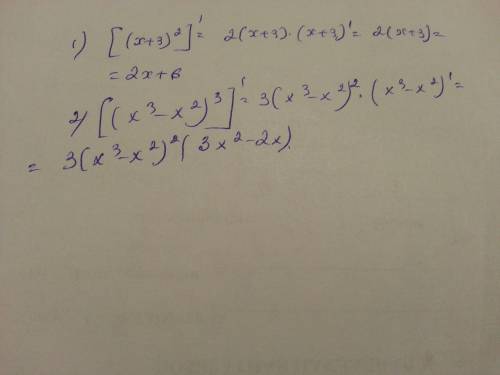 1) [(x+3)²]' = 2(x+3)·(x+3)' = 2(x+3) =
= 2x+6
2) [(x³-x²)³]' = 3(x³-x²)²·(x³-x²)' =
= 3(x³-x²)²(3x²-2x).